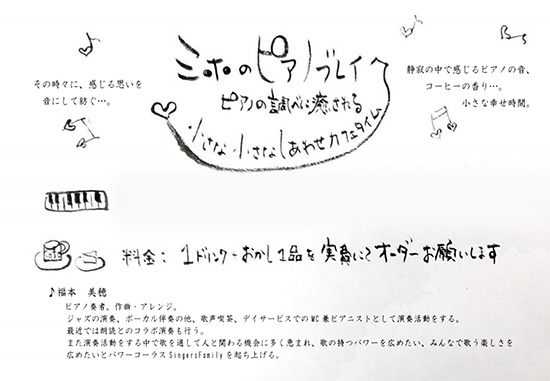 ミホのピアノプレイ
ピアノの調べに癒される
小さな 小さな しあわせ カフェタイム
その時々に、感じる思いを
音にして紡ぐ…。
静寂の中で感じるピアノの音、
コーヒーの香り…。
小さな幸せ時間。
料金: 1ドリンク・おかし1品を実費にてオーダーお願いします
♪福本 美穂
ピアノ奏者。作曲・アレンジ。
ジャズの演奏、ボーカル伴奏の他、歌声喫茶、デイサービスでのMC兼ピアニストとして演奏活動をする。
最近では朗読とのコラボ演奏も行う。
また演奏活動をする中で歌を通して人と関わる機会に多く恵まれ、歌の持つパワーを広めたい、みんなで歌う楽しさを
広めたいとパワーコーラスSingersFamilyを起ち上げる。